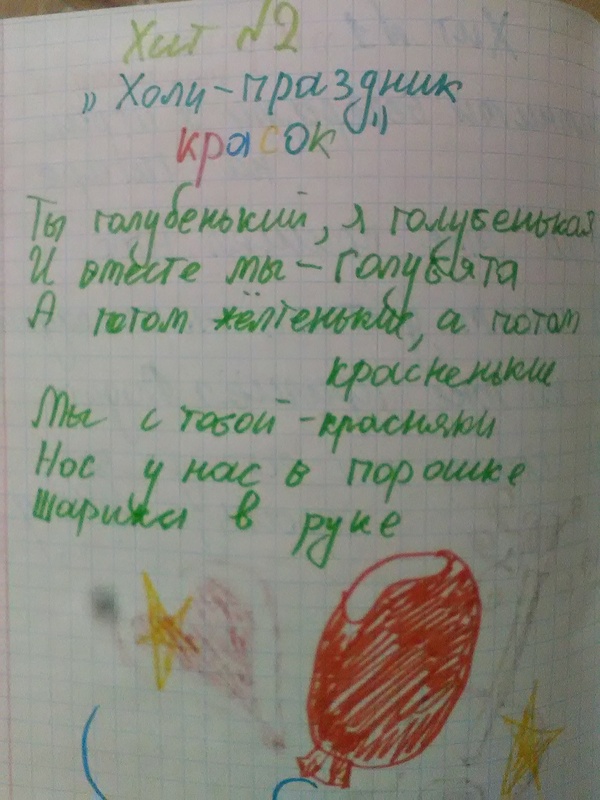 Хит №2
„Холи-праздник
красок"
Ты голубенький, я голубенькая
И вместе мы - Голубята
А потом жёлтенькие, а потом
красненькие
Мы с тобой - красняки
Нос у нас в порошке
Шарики в руке